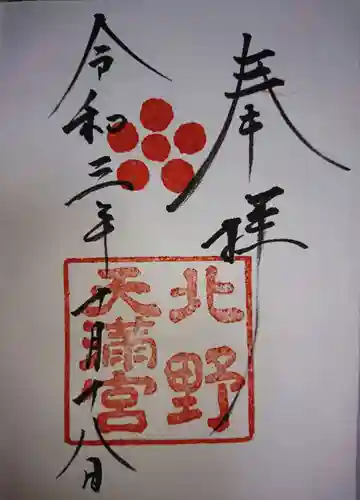 奉拝
北野
天満宮
令和三年十月十八日